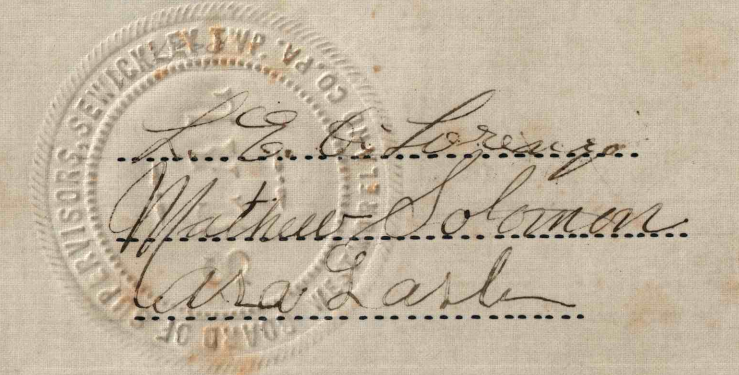 BOARD OF SUPERVISORS, SEWICKLEY TWP. WESTMORELAND CO. PA.
L. E. Di Lorenzo
Mathew Solomon